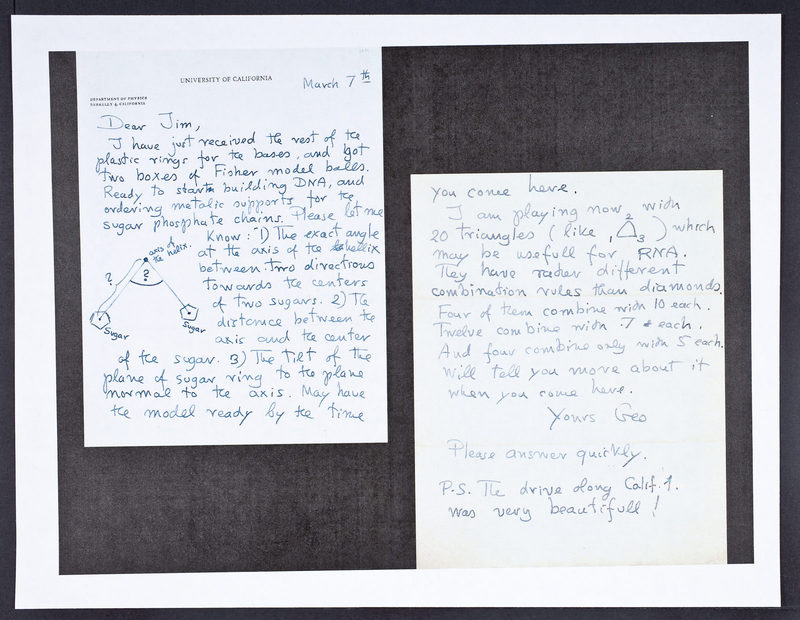 UNIVERSITY OF CALIFORNIA
March 7th
DEPARTMENT OF PHYSICS
BERKELEY 4, CALIFORNIA
Dear Jim,
I have just received the rest of the
plastic rings for the bases, and got
two boxes of Fisher model balls.
Ready to start building DNA, and
ordering metalic supports for the
sugar phosphate chains. Please let me
Know: 1) The exact angle
at the axis of the hellix
between two directions
towards the centers
of two sugars. 2) The
distance between the
axis and the center
of the sugar. 3) The tilt of the
plane of sugar ring to the plane
normal to the axis. May have
the model ready by the time
axis of
the helix.
?
?
Sugar
Sugar
you come here.
I am playing now with
20 triangles (like 1△3 2) which
may be usefull for RNA.
They have rather different
combination rules than diamonds.
Four of them combine with 10 each.
Twelve combine with 7 each.
And four combine only with 5 each.
Will tell you more about it
when you come here.
Yours Geo
Please answer quickly.
P.S. The drive along Calif. 1.
was very beautifull!